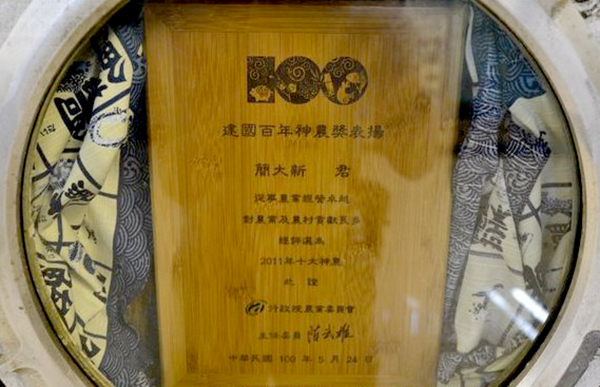 100
建國百年神農獎表揚
簡大新 君
從事農業經營卓越
對農業及農村貢獻良多
經評選為
2011年十大神農
此證
行政院農業委員會
主任委員 陳武雄
中華民國 100 年 5 月 24 日